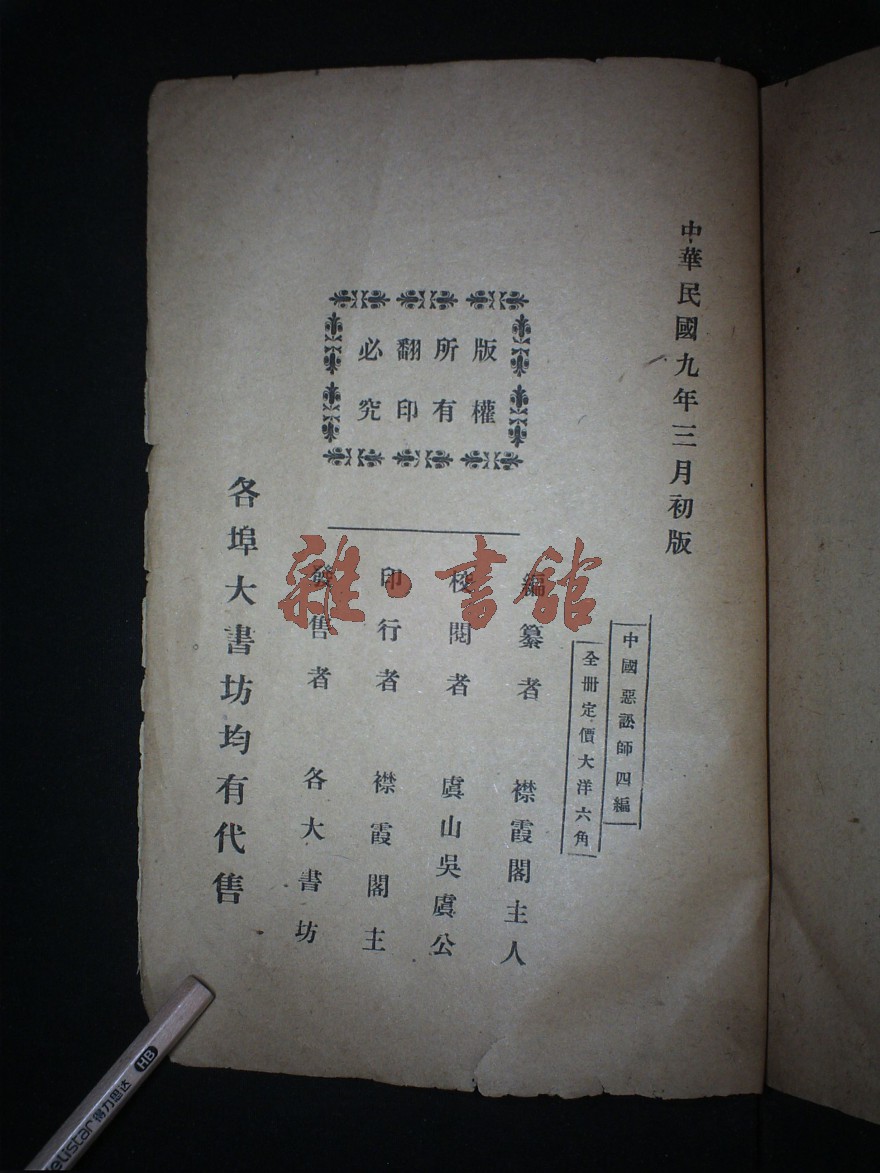 中華民國九年三月初版
中國惡訟師四編
全冊定價大洋六角
版權
所有
翻印
必究
編纂者 襟霞閣主人
校閱者 虞山吳虞公
印行者 襟霞閣主
發售者 各大書坊
各埠大書坊均有代售
雜·書館
HB
得力思达
elistar